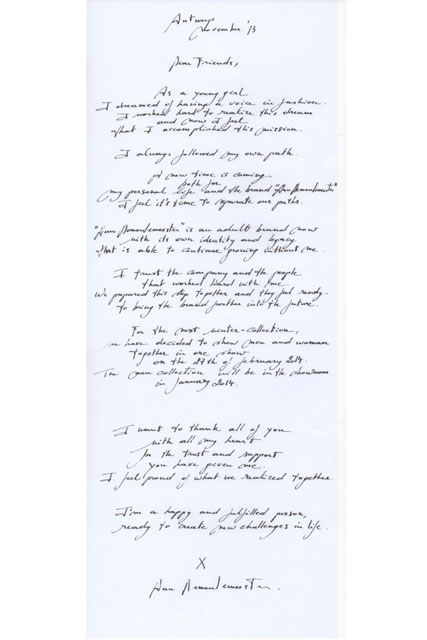 Antwerp
November '13
Dear Friends,
As a young girl
I dreamed of having a voice in fashion.
I worked hard to realize this dream
and now I feel
that I accomplished this mission.
I always followed my own path.
A new time is coming
both for
my personal life and the brand "Ann Demeulemeester"
I feel it's time to separate our paths.
"Ann Demeulemeester" is an adult brand now
with its own identity and legacy
that is able to continue growing without me.
I trust the company and the people
that worked hard with me
We prepared this step together and they feel ready
to bring the brand further into the future.
For the next winter-collection,
we have decided to show men and women
together in one show
on the 27th of february 2014.
The men collection will be in the showroom
in January 2014.
I want to thank all of you
with all my heart
for the trust and support
you have given me
I feel proud of what we realized together.
I'm a happy and fulfilled person,
ready to create new challenges in life.
X
Ann Demeulemeester.